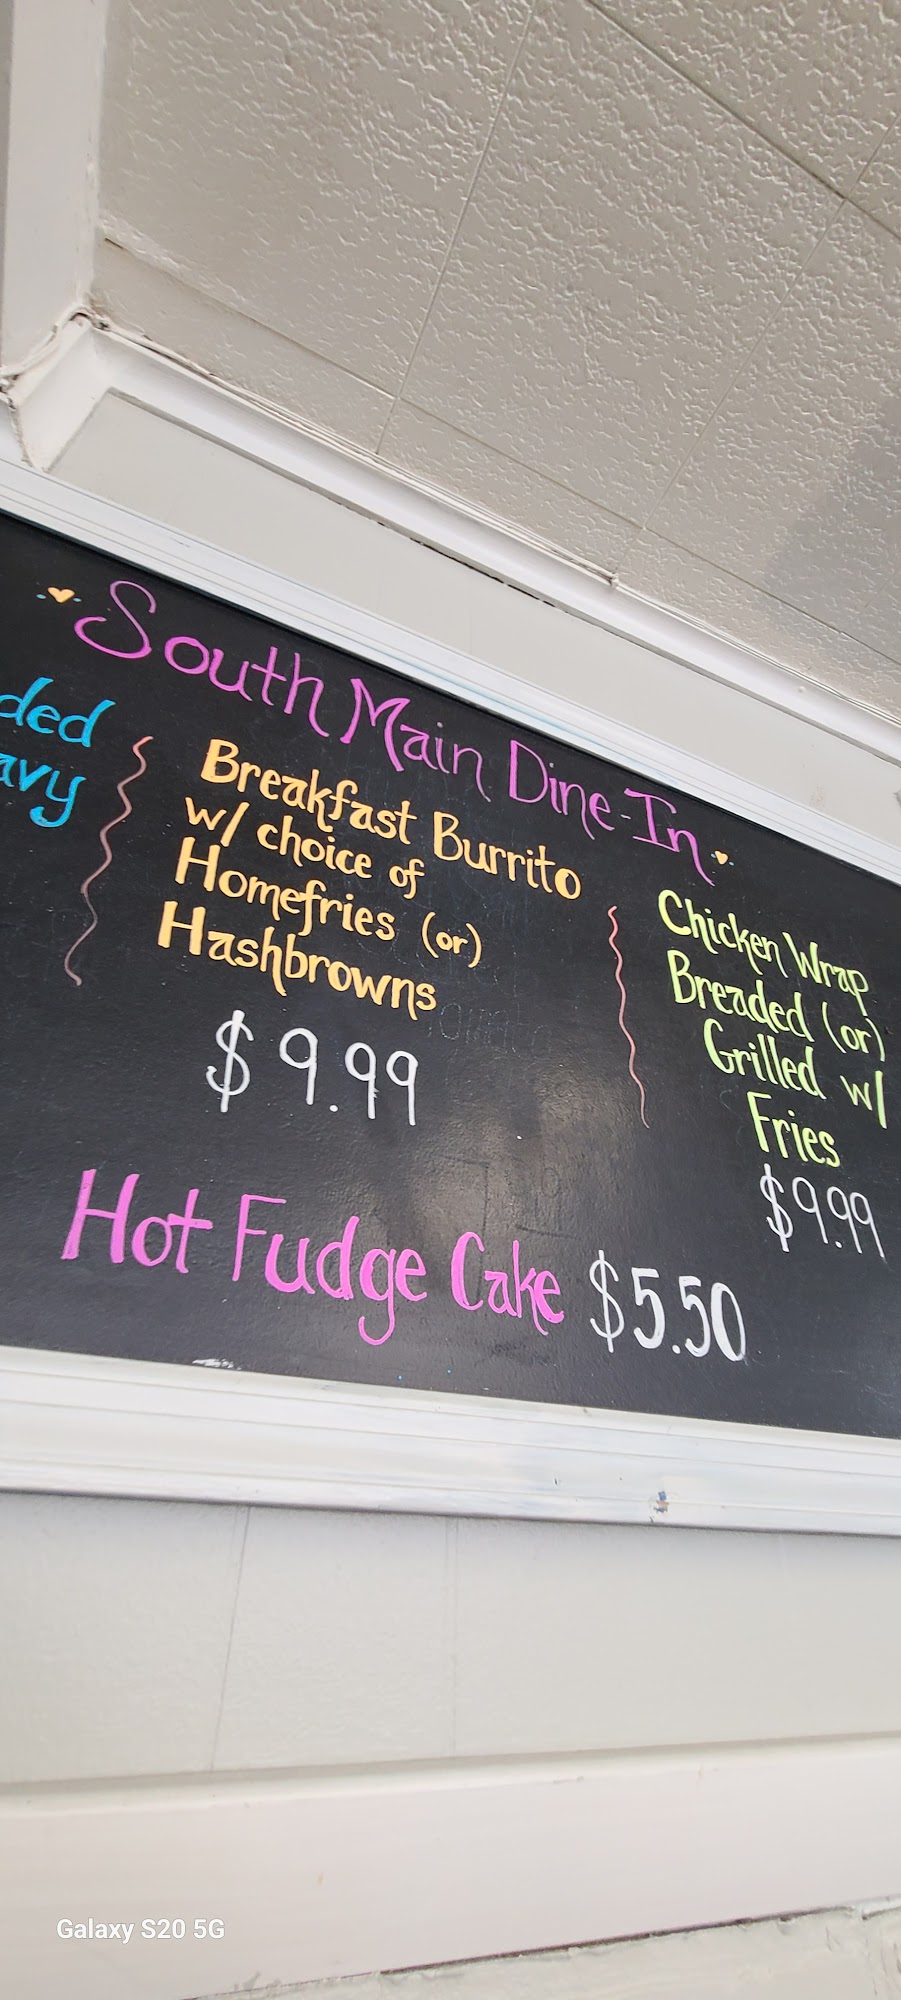 South Main Dine-In
Breakfast Burrito
w/ choice of
Homefries (or)
Hashbrowns
$9.99
Chicken Wrap
Breaded (or)
Grilled w/
Fries
$9.99
Hot Fudge Cake $5.50
Galaxy S20 5G